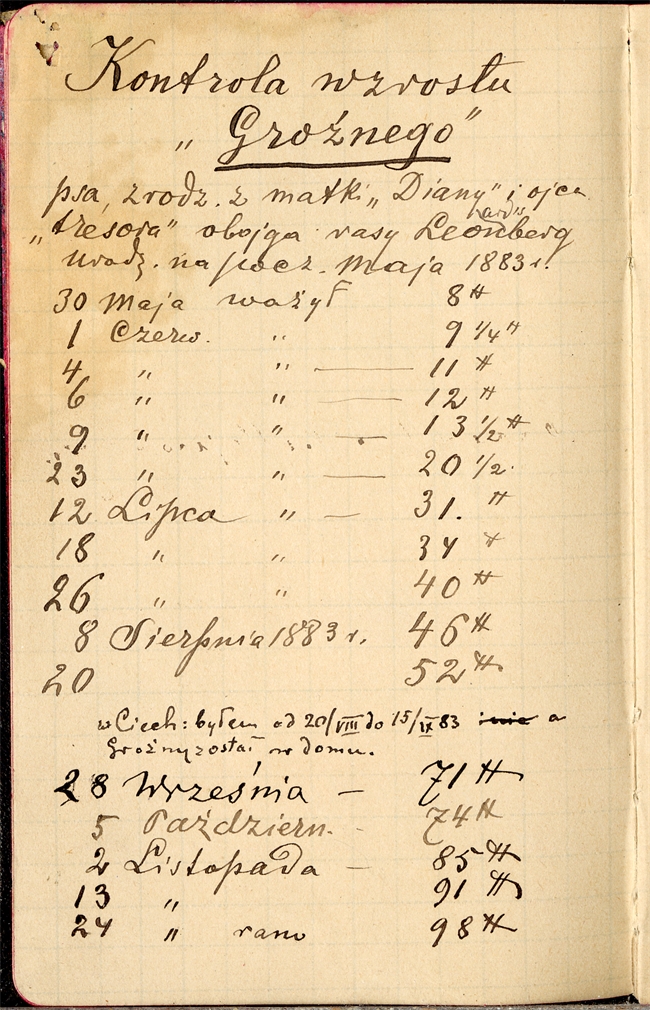 Kontrola wzrostu
„Groźnego"
psa, zrodz. z matki „Diany" i ojca
„Trésora" obojga rasy Leonberg
urodz. na pocz. Maja 1883 r.
30 Maja ważył 8 ℔
1 Czerw. " 9 1/4 ℔
4 " " — 11 ℔
6 " " — 12 ℔
9 " " — 13 1/2 ℔
23 " " — 20 1/2.
12 Lipca " — 31. ℔
18 " " 34 ℔
26 " " 40 ℔
8 Sierpnia 1883 r. 46 ℔
20 52 ℔
w Ciech: byłem od 20/VIII do 15/IX 83 a
Groźny został w domu.
28 Września — 71 ℔
5 Październ. - 74 ℔
2 Listopada — 85 ℔
13 " 91 ℔
24 " rano 98 ℔